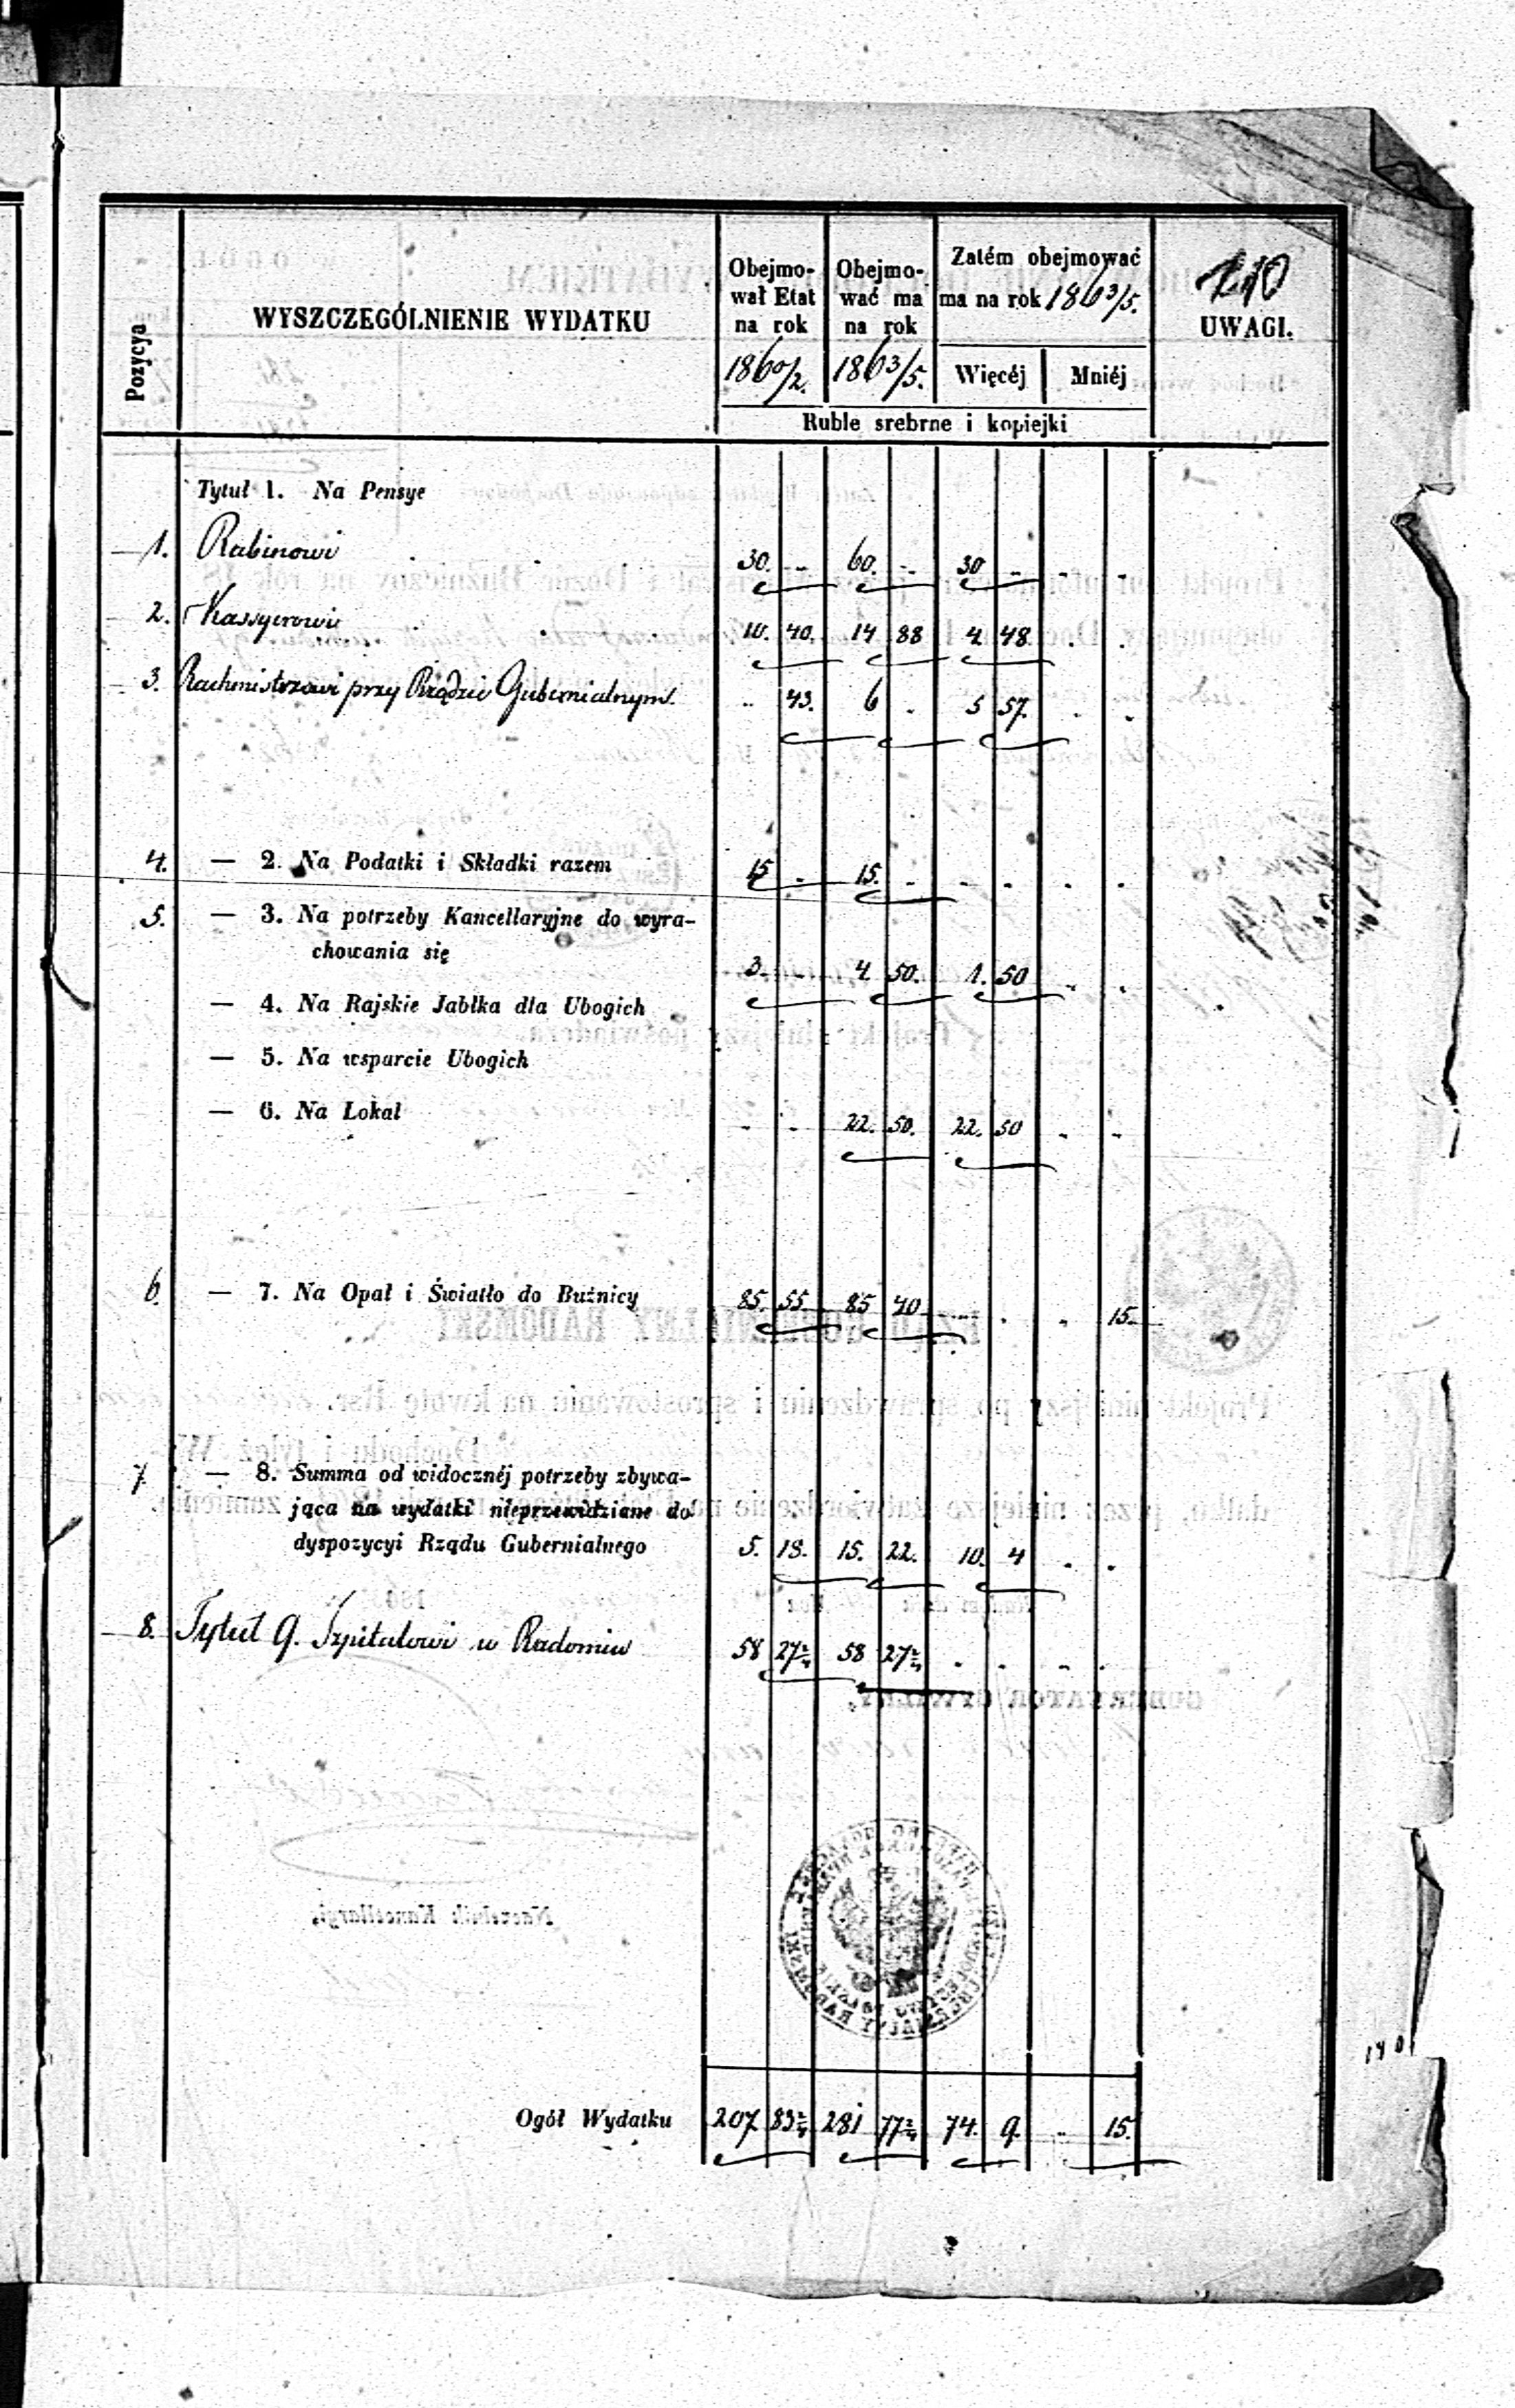 210
Pozycya
WYSZCZEGÓLNIENIE WYDATKU
Obejmo-
wał Etat
na rok
1860/2.
Obejmo-
wać ma
na rok
1863/5.
Zatém obejmować
ma na rok 1863/5.
Więcéj Mniéj
UWAGI.
Ruble srebrne i kopiejki
Tytuł 1. Na Pensye
1. Rabinowi 30. .. 60. .. 30 .. . .
2. Kassyerowi 10. 40. 14 88 4. 48. . .
3. Rachmistrzowi przy Rządzie Gubernialnym. .. 43. 6 . 5 57. . .
4. — 2. Na Podatki i Składki razem 15 . 15. . . . . .
5. — 3. Na potrzeby Kancellaryjne do wyra-
chowania się 3. .. 4. 50. 1. 50 . .
— 4. Na Rajskie Jabłka dla Ubogich
— 5. Na wsparcie Ubogich
— 6. Na Lokal . . 22. 50. 22. 50 . .
6. — 7. Na Opał i Światło do Buźnicy 85. 55. 85 40 .. . . 15.
7. — 8. Summa od widocznéj potrzeby zbywa-
jąca na wydatki nieprzewidziane do
dyspozycyi Rządu Gubernialnego 5. 18. 15. 22. 10. 4 . .
8. Tytuł 9. Szpitalowi w Radomiu 58 27 2/4 58 27 2/4 . . . .
Ogół Wydatku 207. 83 2/4 281 77 2/4 74. 9. .. 15.